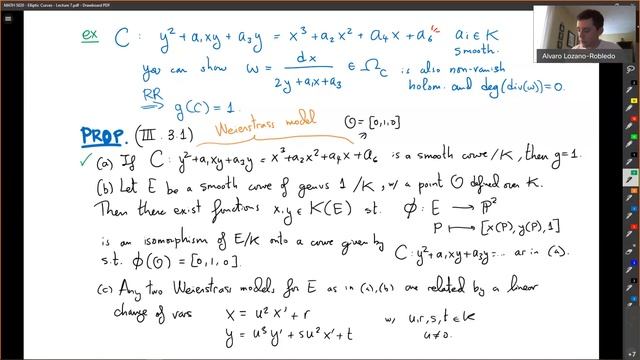 MATH 5020 - Elliptic Curves - Lecture 7.pdf - Drawboard PDF
Alvaro Lozano-Robledo
ex C: y² + a₁xy + a₃y = x³ + a₂x² + a₄x + a₆ aᵢ ∈ K
smooth.
you can show ω = dx / (2y + a₁x + a₃) ∈ Ω_C is also non-vanish
holom. and deg(div(ω)) = 0.
RR ⟹ g(C) = 1.
Weierstrass model O = [0,1,0]
PROP. (III. 3.1)
✓ (a) If C: y² + a₁xy + a₃y = x³ + a₂x² + a₄x + a₆ is a smooth curve /K, then g=1.
(b) Let E be a smooth curve of genus 1 /K, w/ a point O defined over K.
Then there exist functions x, y ∈ K(E) st. ϕ: E ⟶ P²
P ⟼ [x(P), y(P), 1]
is an isomorphism of E/K onto a curve given by C: y² + a₁xy + a₃y = ... as in (a).
s.t. ϕ(O) = [0,1,0].
(c) Any two Weierstrass models for E as in (a),(b) are related by a linear
change of vars x = u²x' + r w/ u,r,s,t ∈ K
y = u³y' + su²x' + t u≠0.